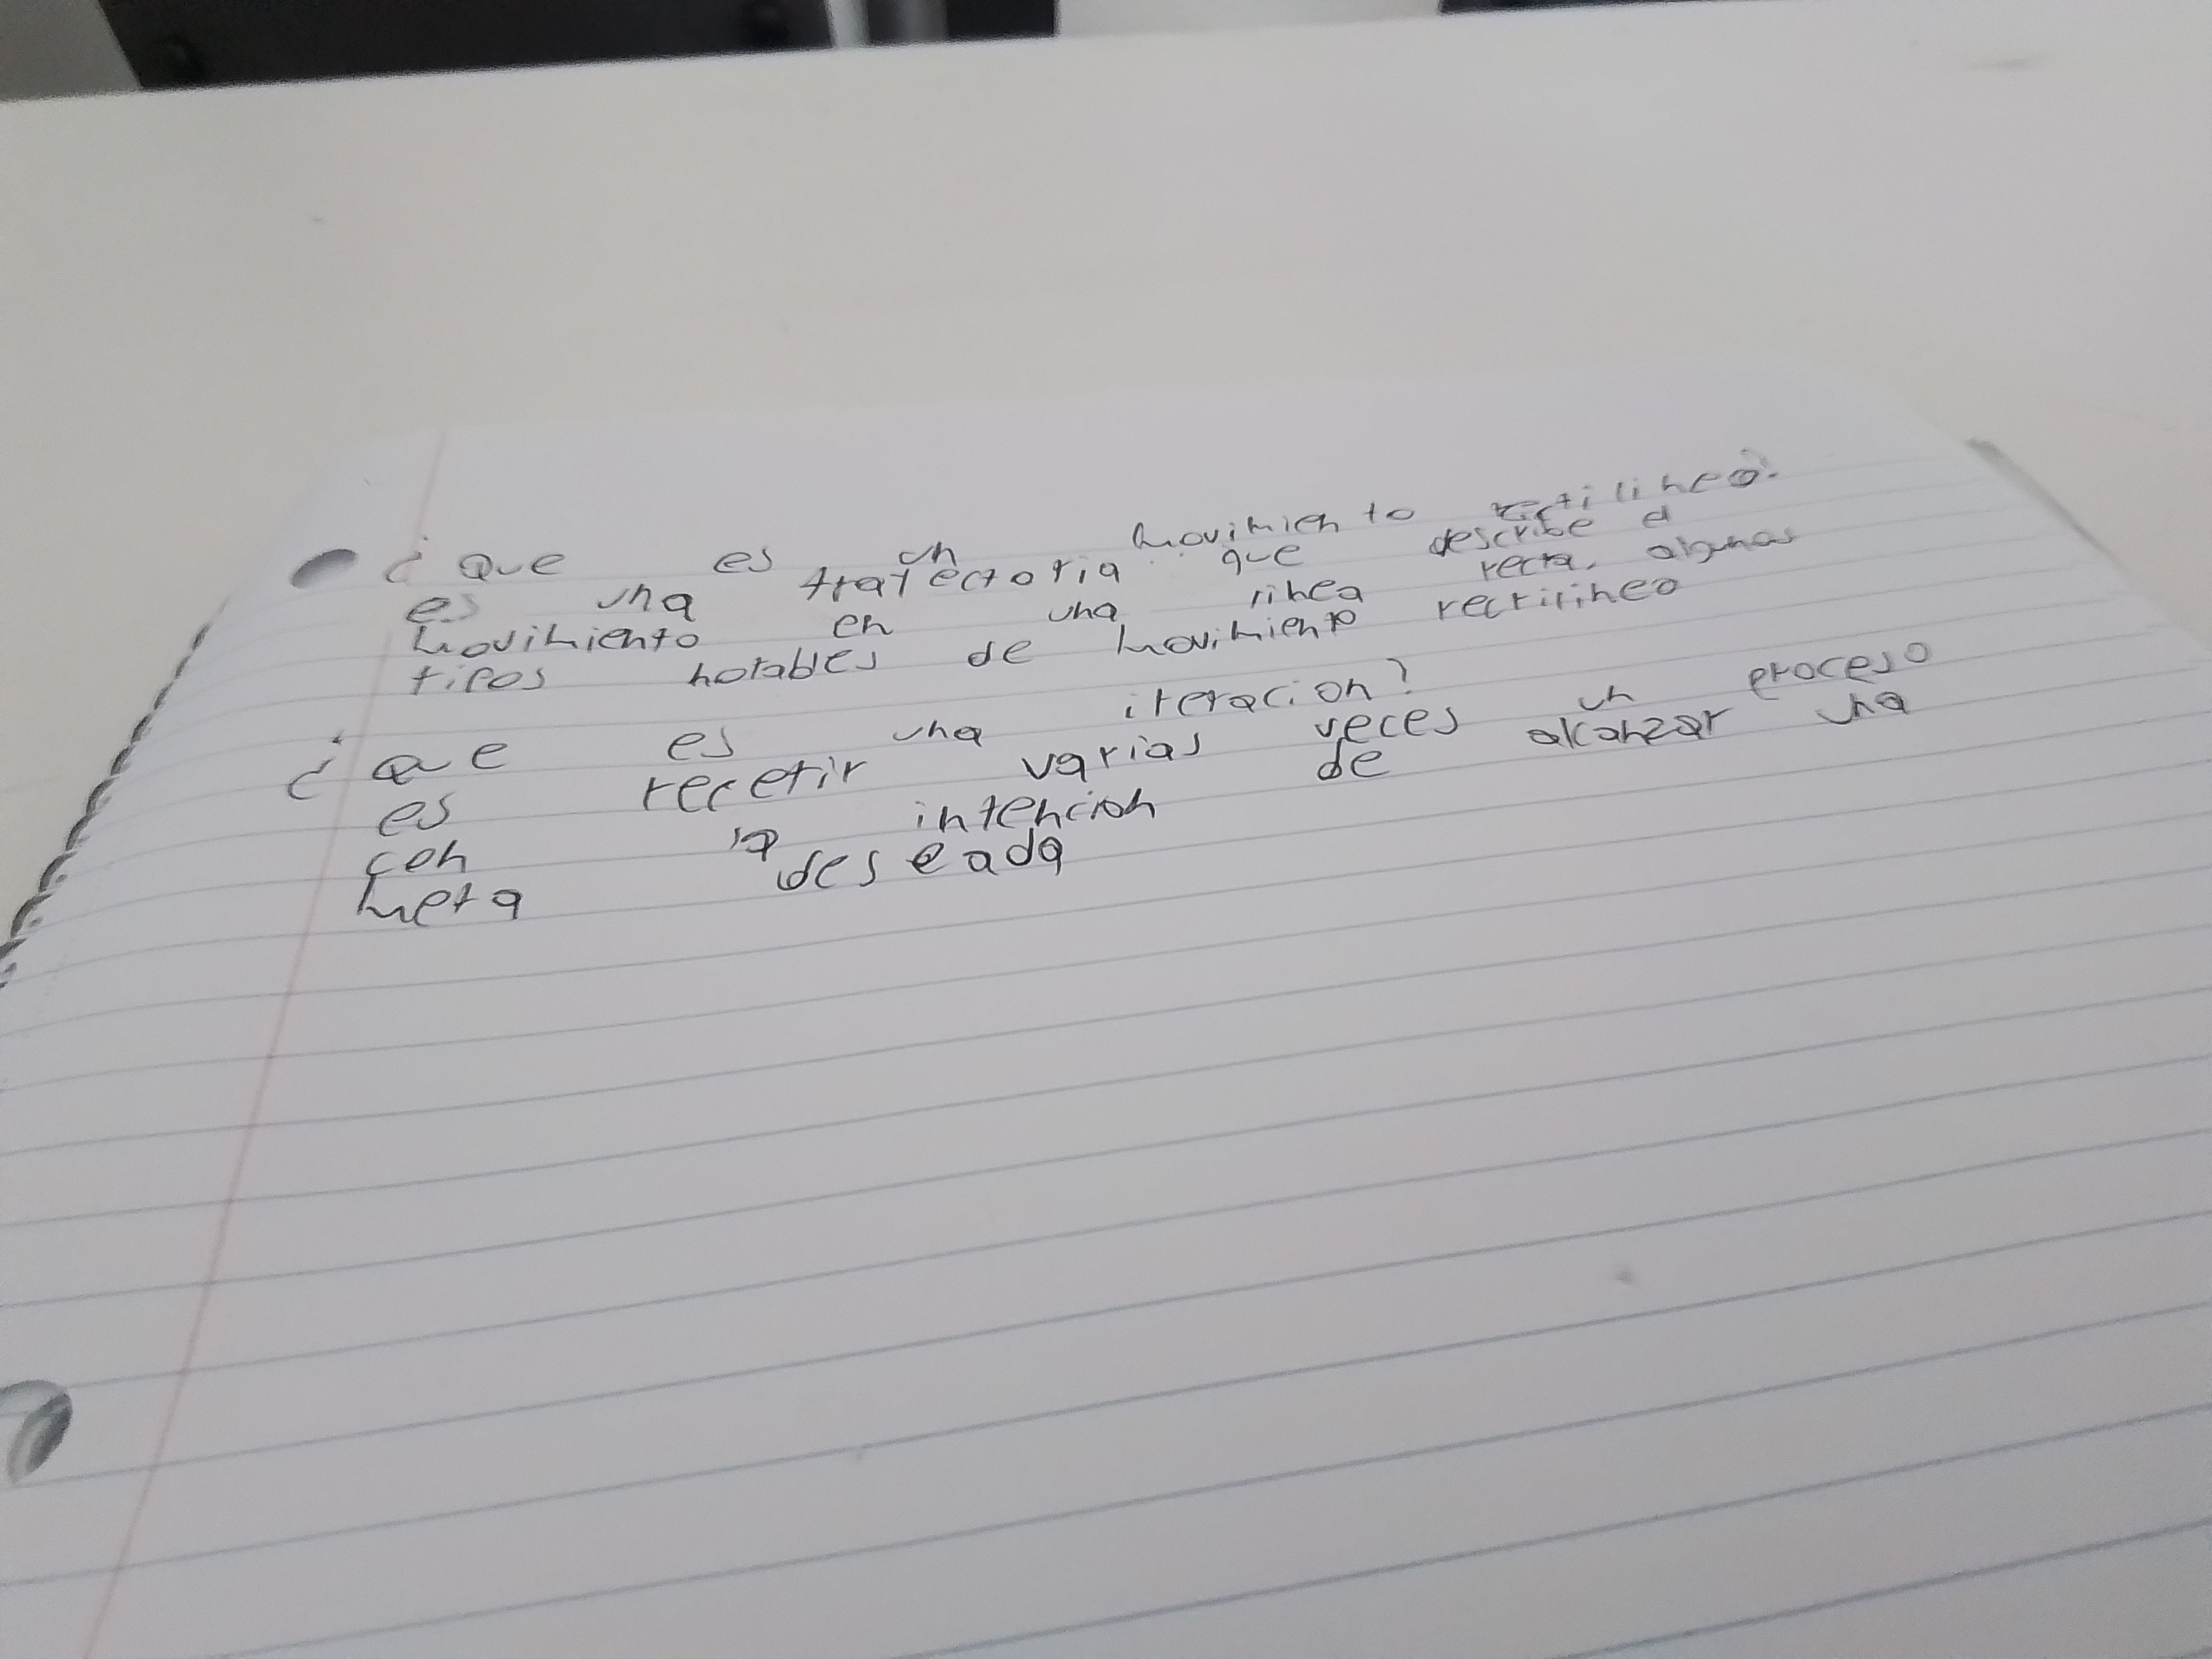 ¿Que es un movimiento rectilineo?
es una trayectoria que describe el
movimiento en una linea recta, algunas
tipos notables de movimiento rectilineo
¿Que es una iteracion?
es repetir varias veces un proceso
con la intencion de alcanzar una
meta deseada